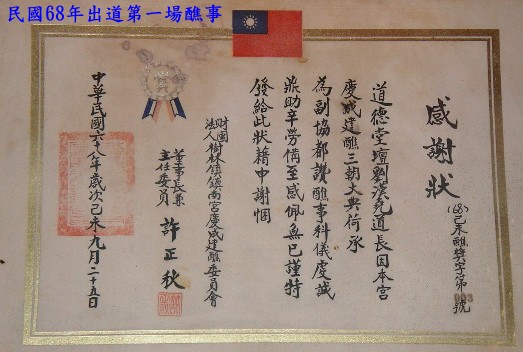 民國68年出道第一場醮事
感謝狀
(68)己未醮獎字第003號
道德堂壇劉漢光道長因本宮
慶成建醮三朝大典荷承
為副協都講醮事科儀虔誠
鼎助辛勞備至感佩無已謹特
發給此狀藉申謝悃
財團法人樹林鎮鎮南宮慶成建醮委員會
董事長兼主任委員 許正秋
中華民國六十八年歲次己未九月二十五日